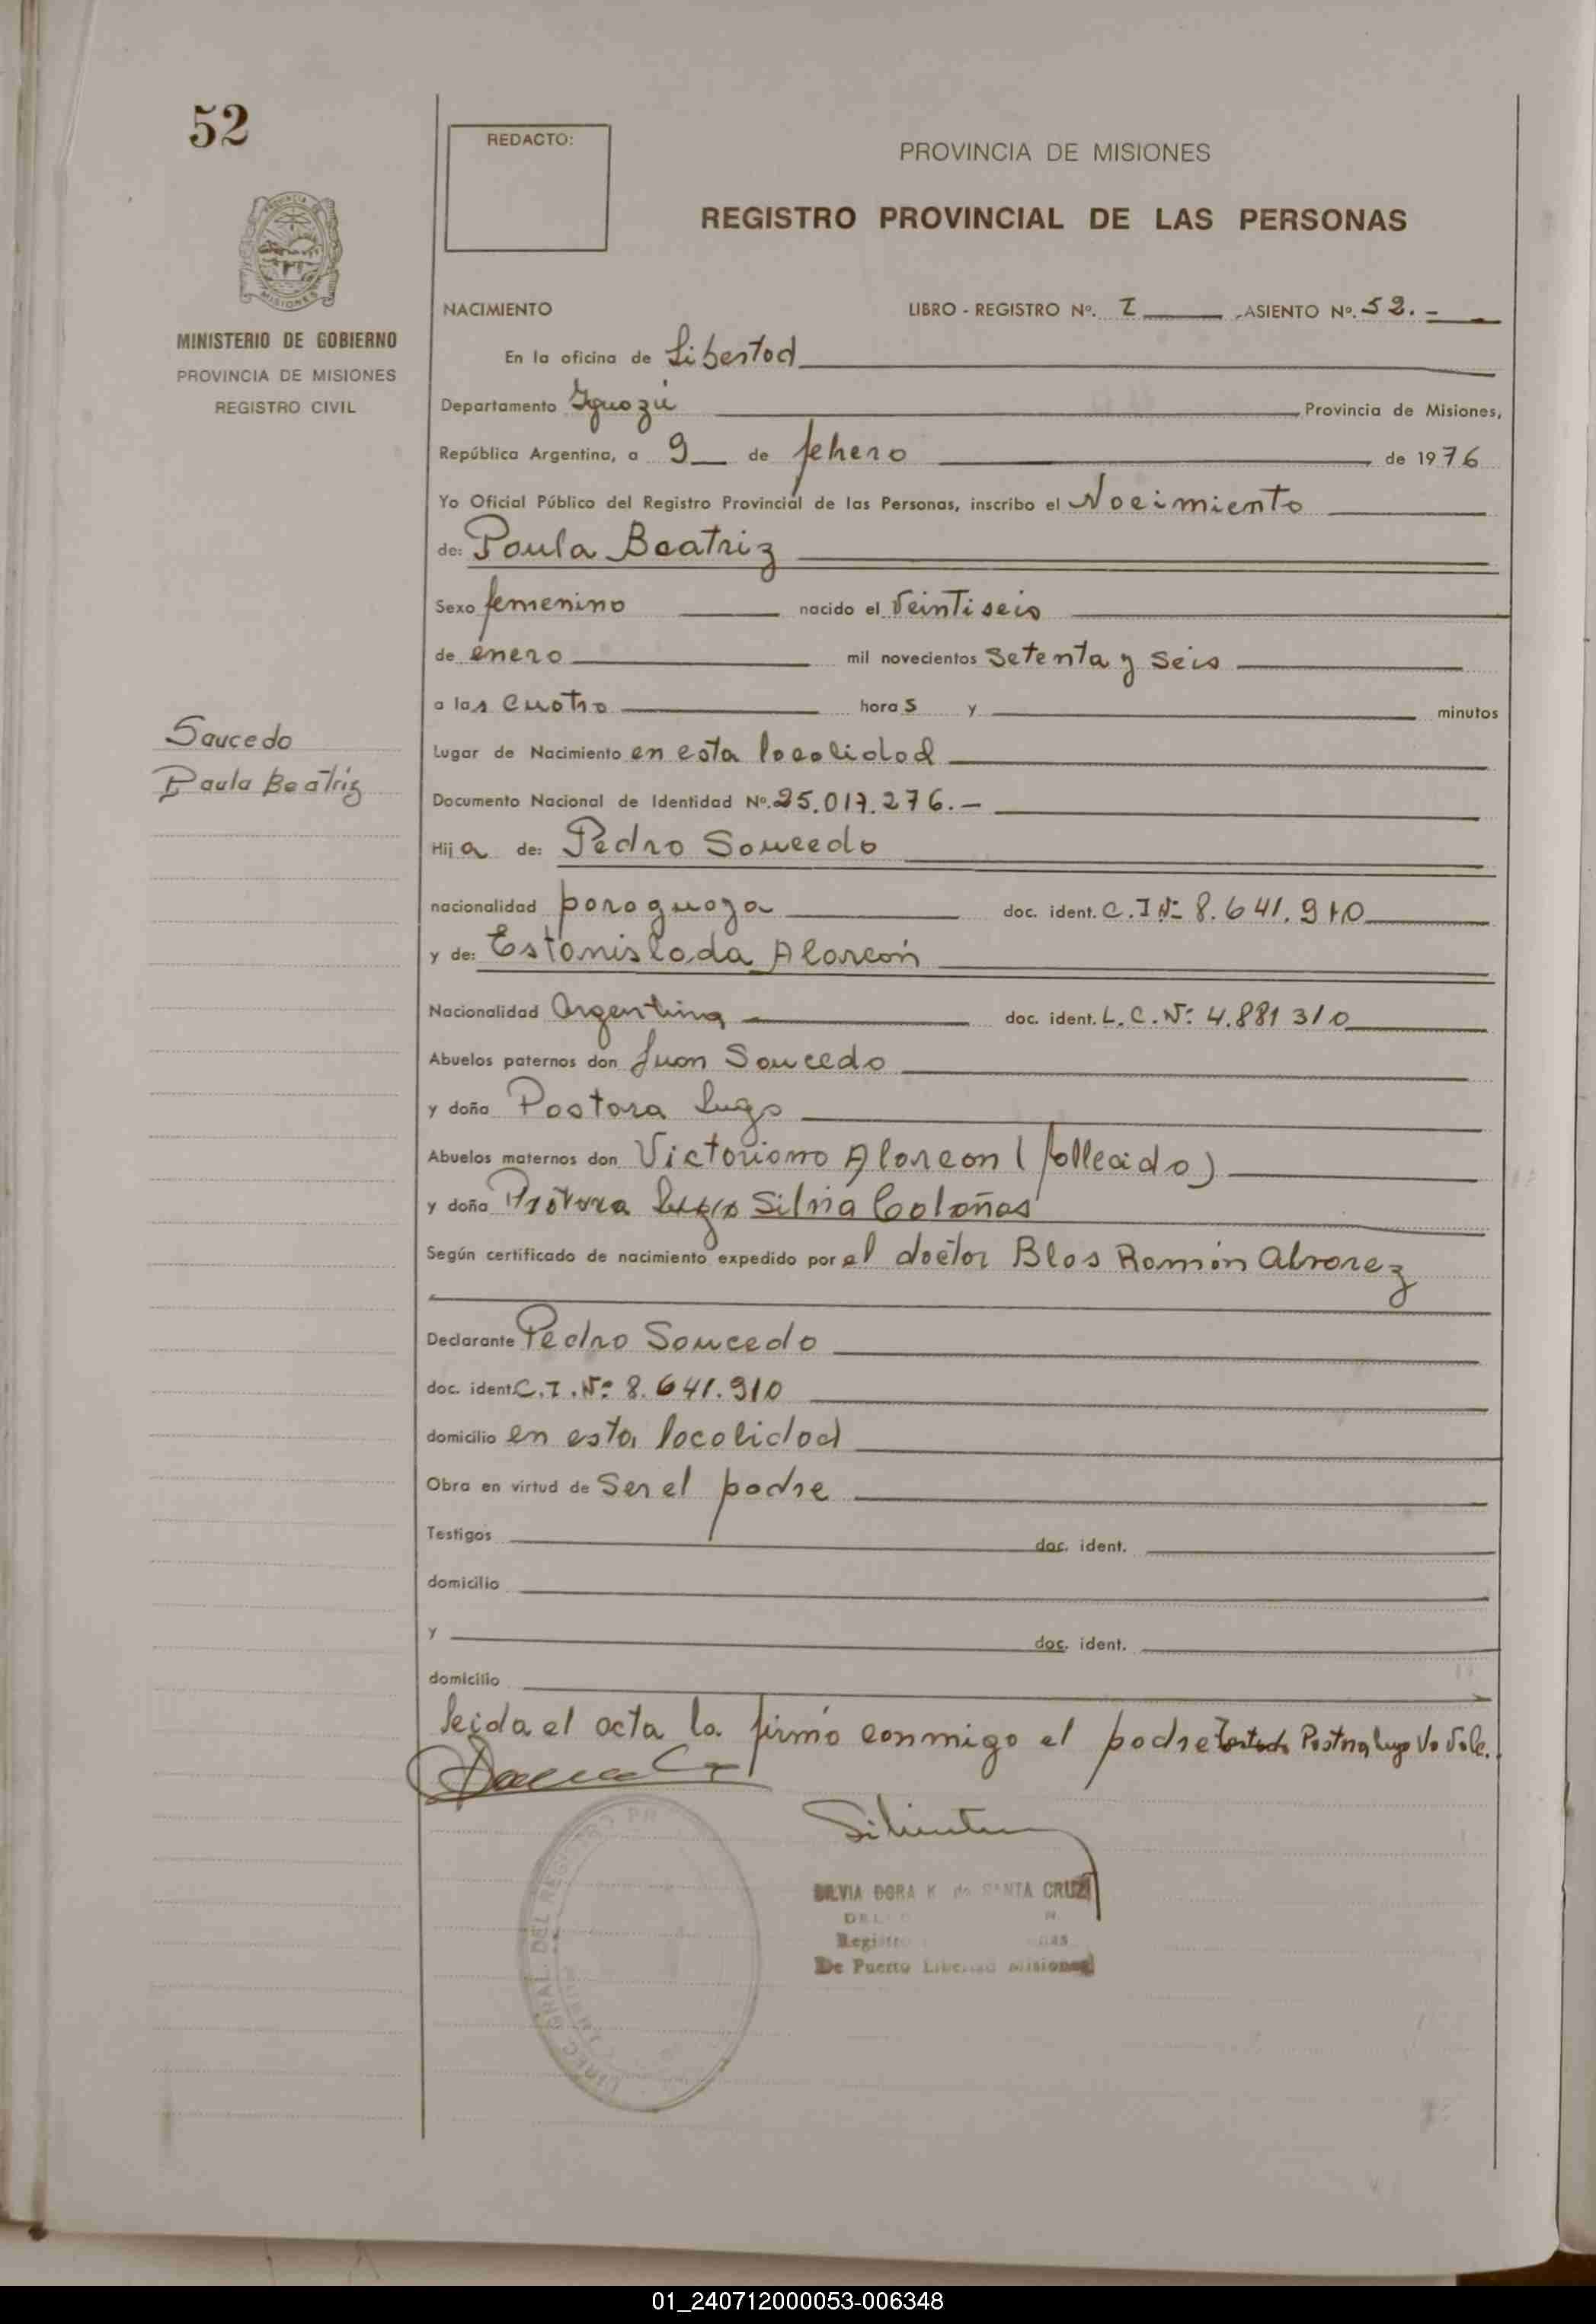 52
REDACTO:
PROVINCIA DE MISIONES
REGISTRO PROVINCIAL DE LAS PERSONAS
MINISTERIO DE GOBIERNO
PROVINCIA DE MISIONES
REGISTRO CIVIL
NACIMIENTO LIBRO - REGISTRO Nº. I ASIENTO Nº. 52.-
En la oficina de Libertad
Departamento Iguazú Provincia de Misiones,
República Argentina, a 9 de febrero de 1976
Yo Oficial Público del Registro Provincial de las Personas, inscribo el Nacimiento
de: Paula Beatriz
Sexo femenino nacido el Veintiseis
de enero mil novecientos setenta y seis
a las cuatro horas y minutos
Saucedo
Paula Beatriz
Lugar de Nacimiento en esta localidad
Documento Nacional de Identidad Nº. 25.017.276.-
Hija de: Pedro Saucedo
nacionalidad paraguaya doc. ident. C.I Nº 8.641.910
y de: Estanislada Alarcón
Nacionalidad Argentina doc. ident. L.C.Nº 4.881310
Abuelos paternos don Juan Saucedo
y doña Pastora Lugo
Abuelos maternos don Victoriano Alarcon (fallecido)
y doña Pastora Lugo Silvia Colañas
Según certificado de nacimiento expedido por el doctor Blas Ramón Alvarez
Declarante Pedro Saucedo
doc. ident. C.I.Nº 8.641.910
domicilio en esta localidad
Obra en virtud de Ser el padre
Testigos doc. ident.
domicilio
y doc. ident.
domicilio
Leida el acta la firmó conmigo el padre Testado Pastora Lugo No Vale.
SILVIA DORA K de SANTA CRUZ
De Puerto Libertad Misiones
DIREC. GRAL. DEL REGISTRO PR
01_240712000053-006348